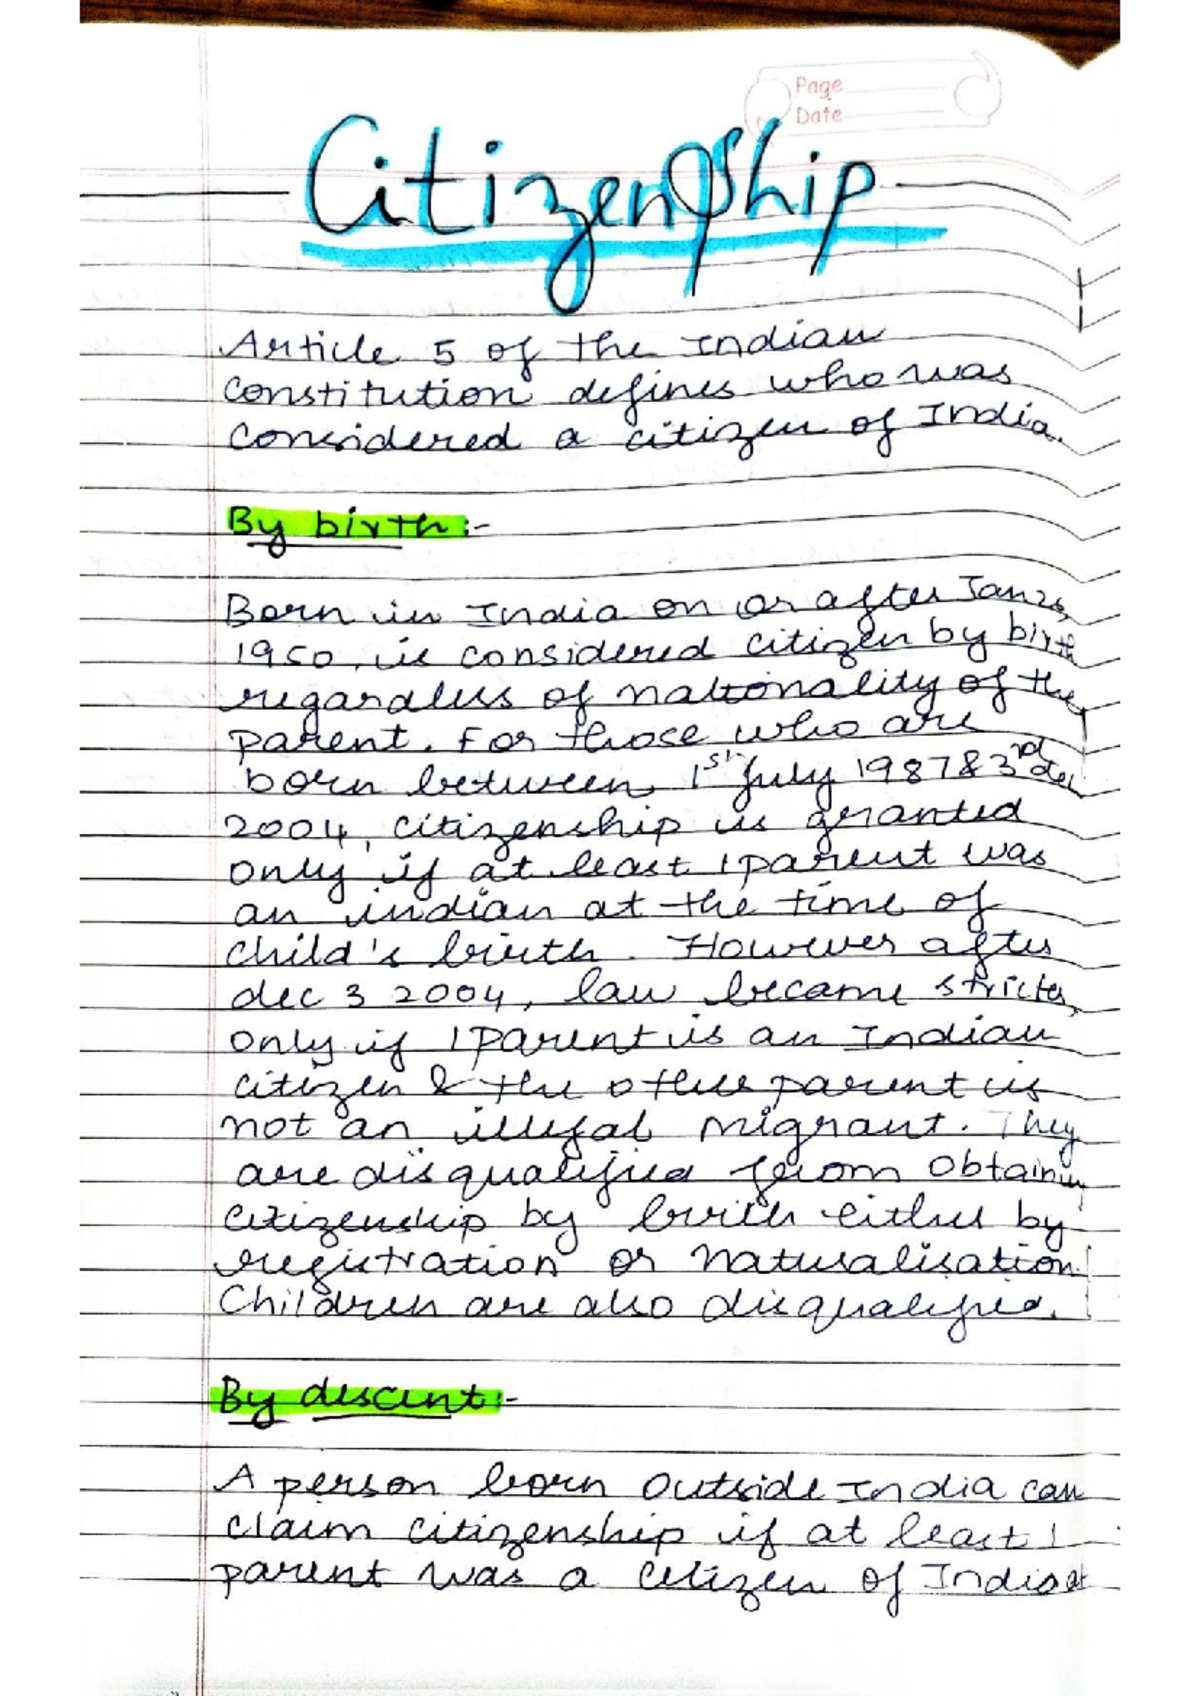 Page
Date
Citizenship
Article 5 of the Indian
constitution defines who was
considered a citizen of India.
By birth:-
Born in India on or after Jan 26,
1950, is considered citizen by birth
regardless of nationality of the
parent. For those who are
born between 1st July 1987 & 3rd dec
2004, citizenship is granted
only if at least 1 parent was
an indian at the time of
child's birth. However after
dec 3 2004, law became stricter,
only if 1 parent is an Indian
citizen & the other parent is
not an illegal migrant. They
are disqualified from obtaining
citizenship by birth either by
registration or naturalisation.
Children are also disqualified.
By descent:-
A person born outside India can
claim citizenship if at least 1
parent was a citizen of India at